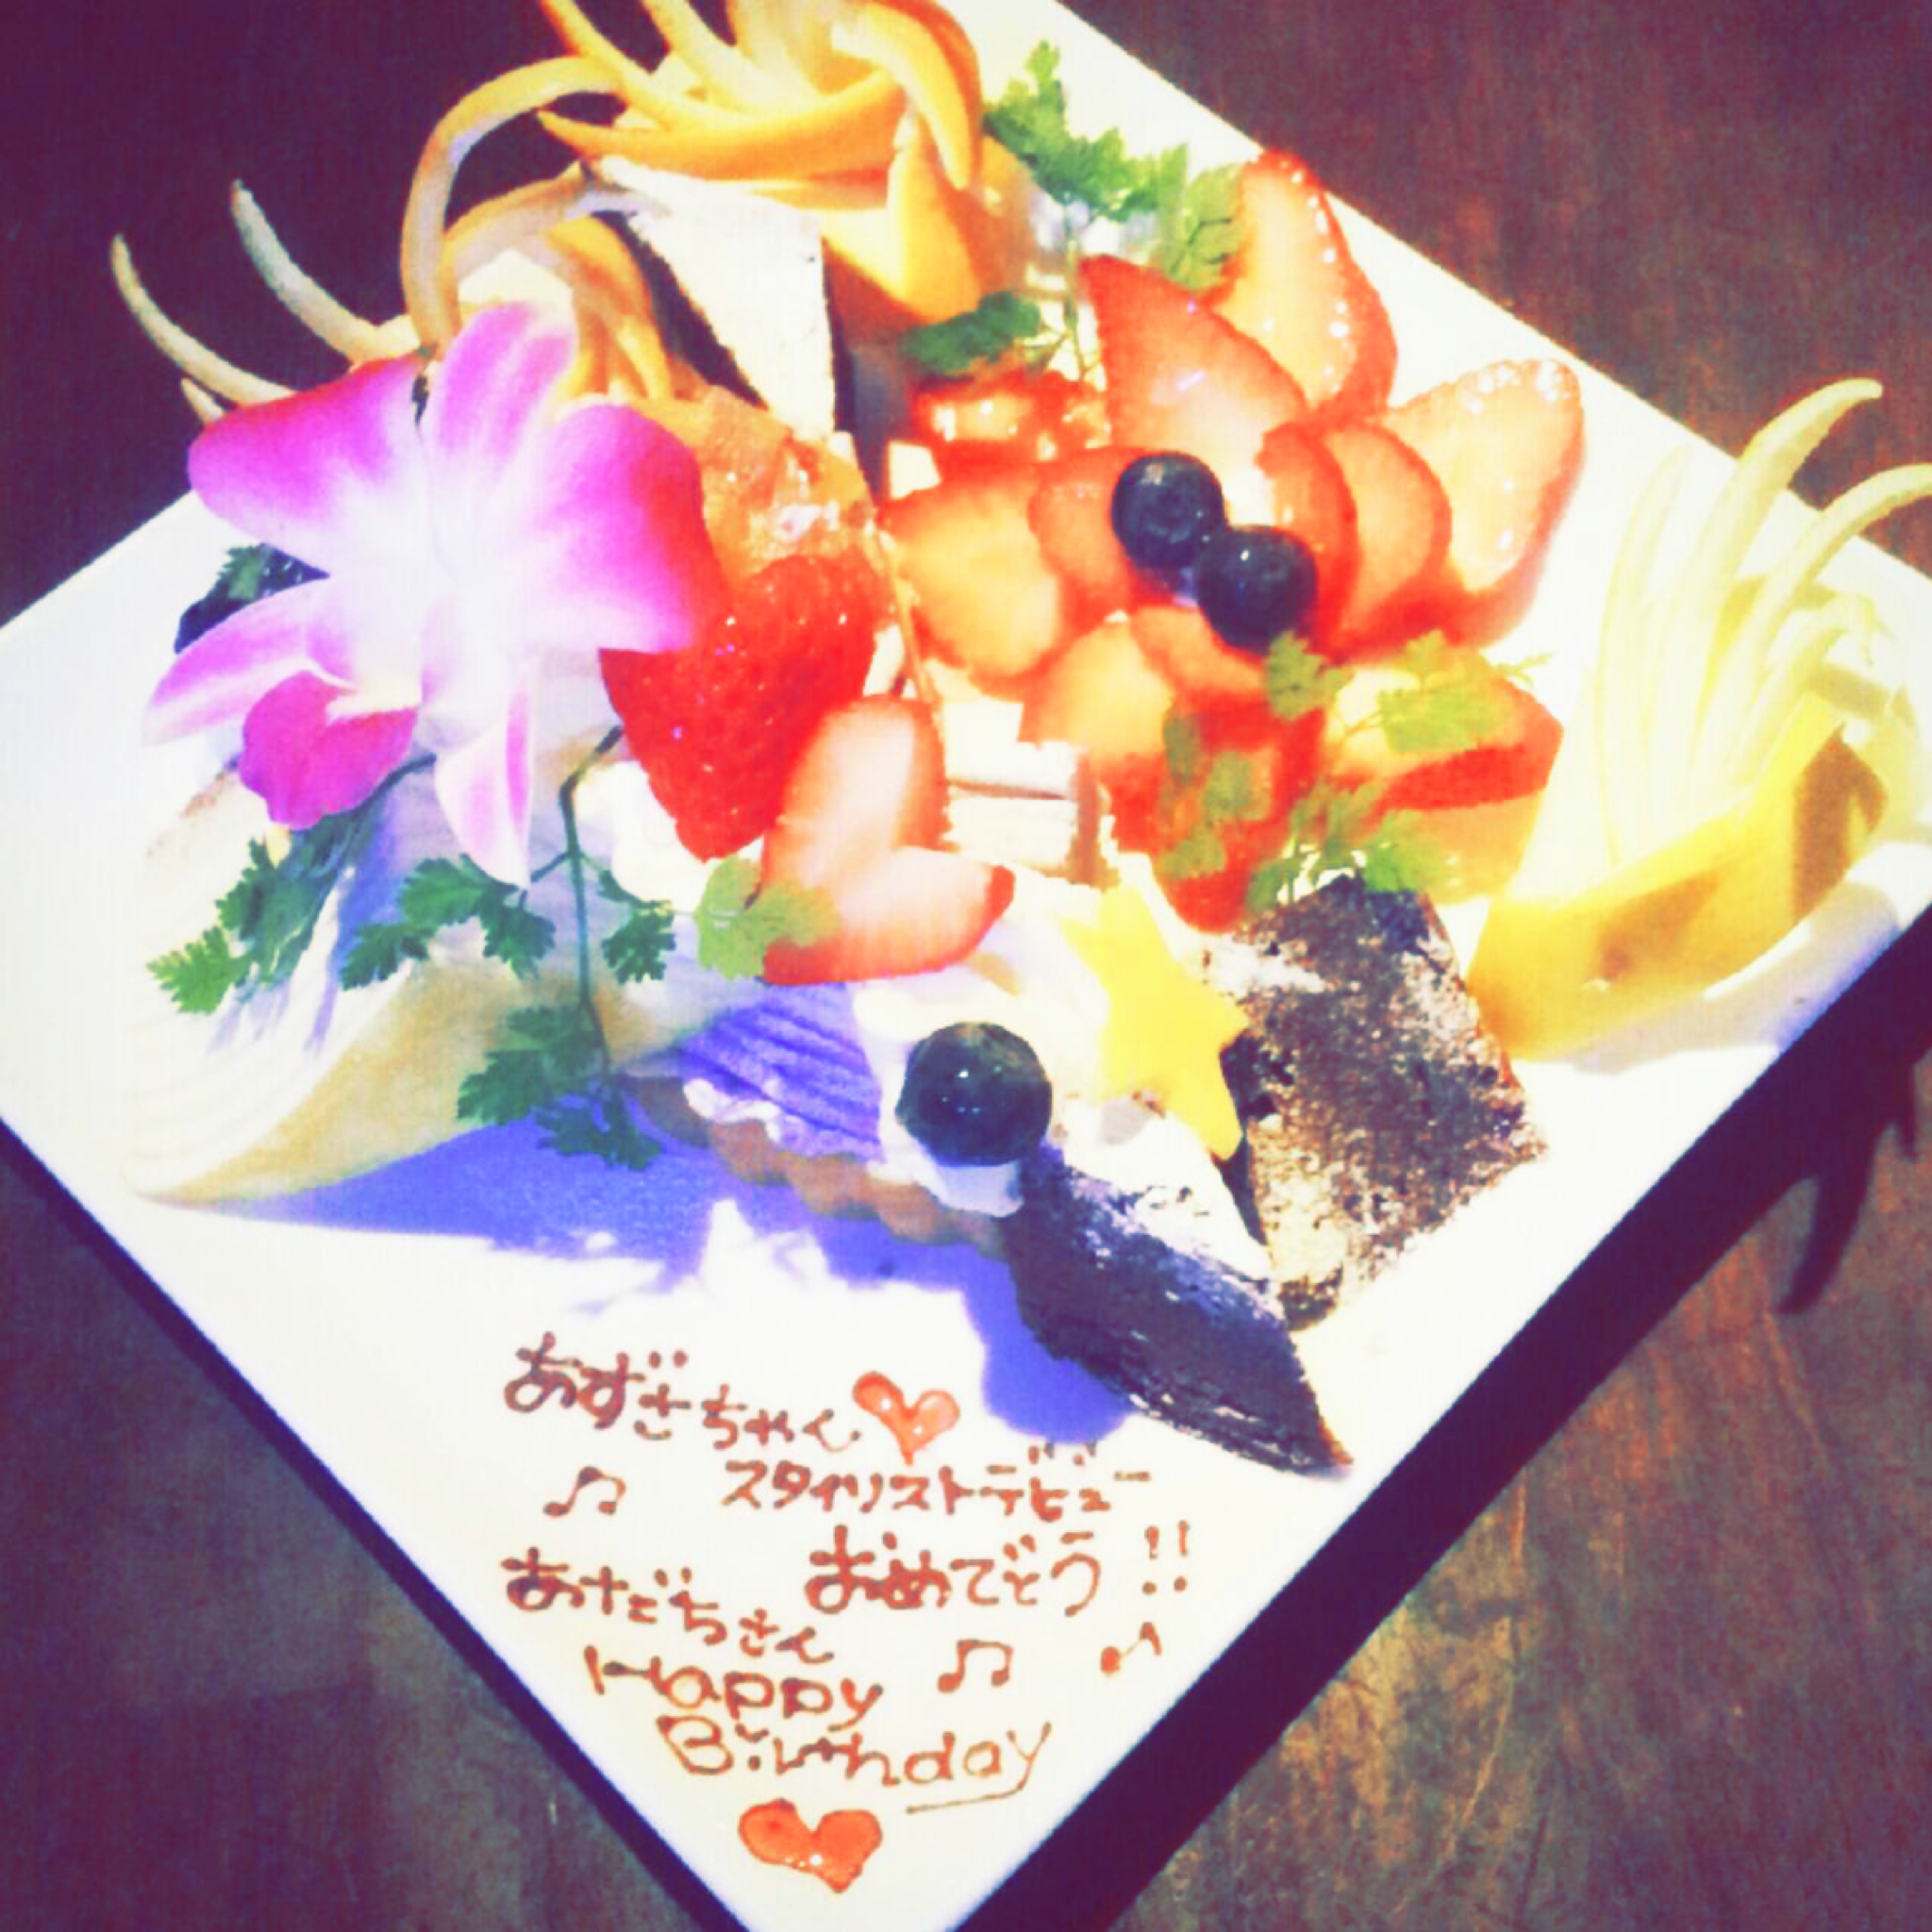 あずさちゃん
スタイリストデビュー
おめでとう!!
あだちさん
Happy
Birthday